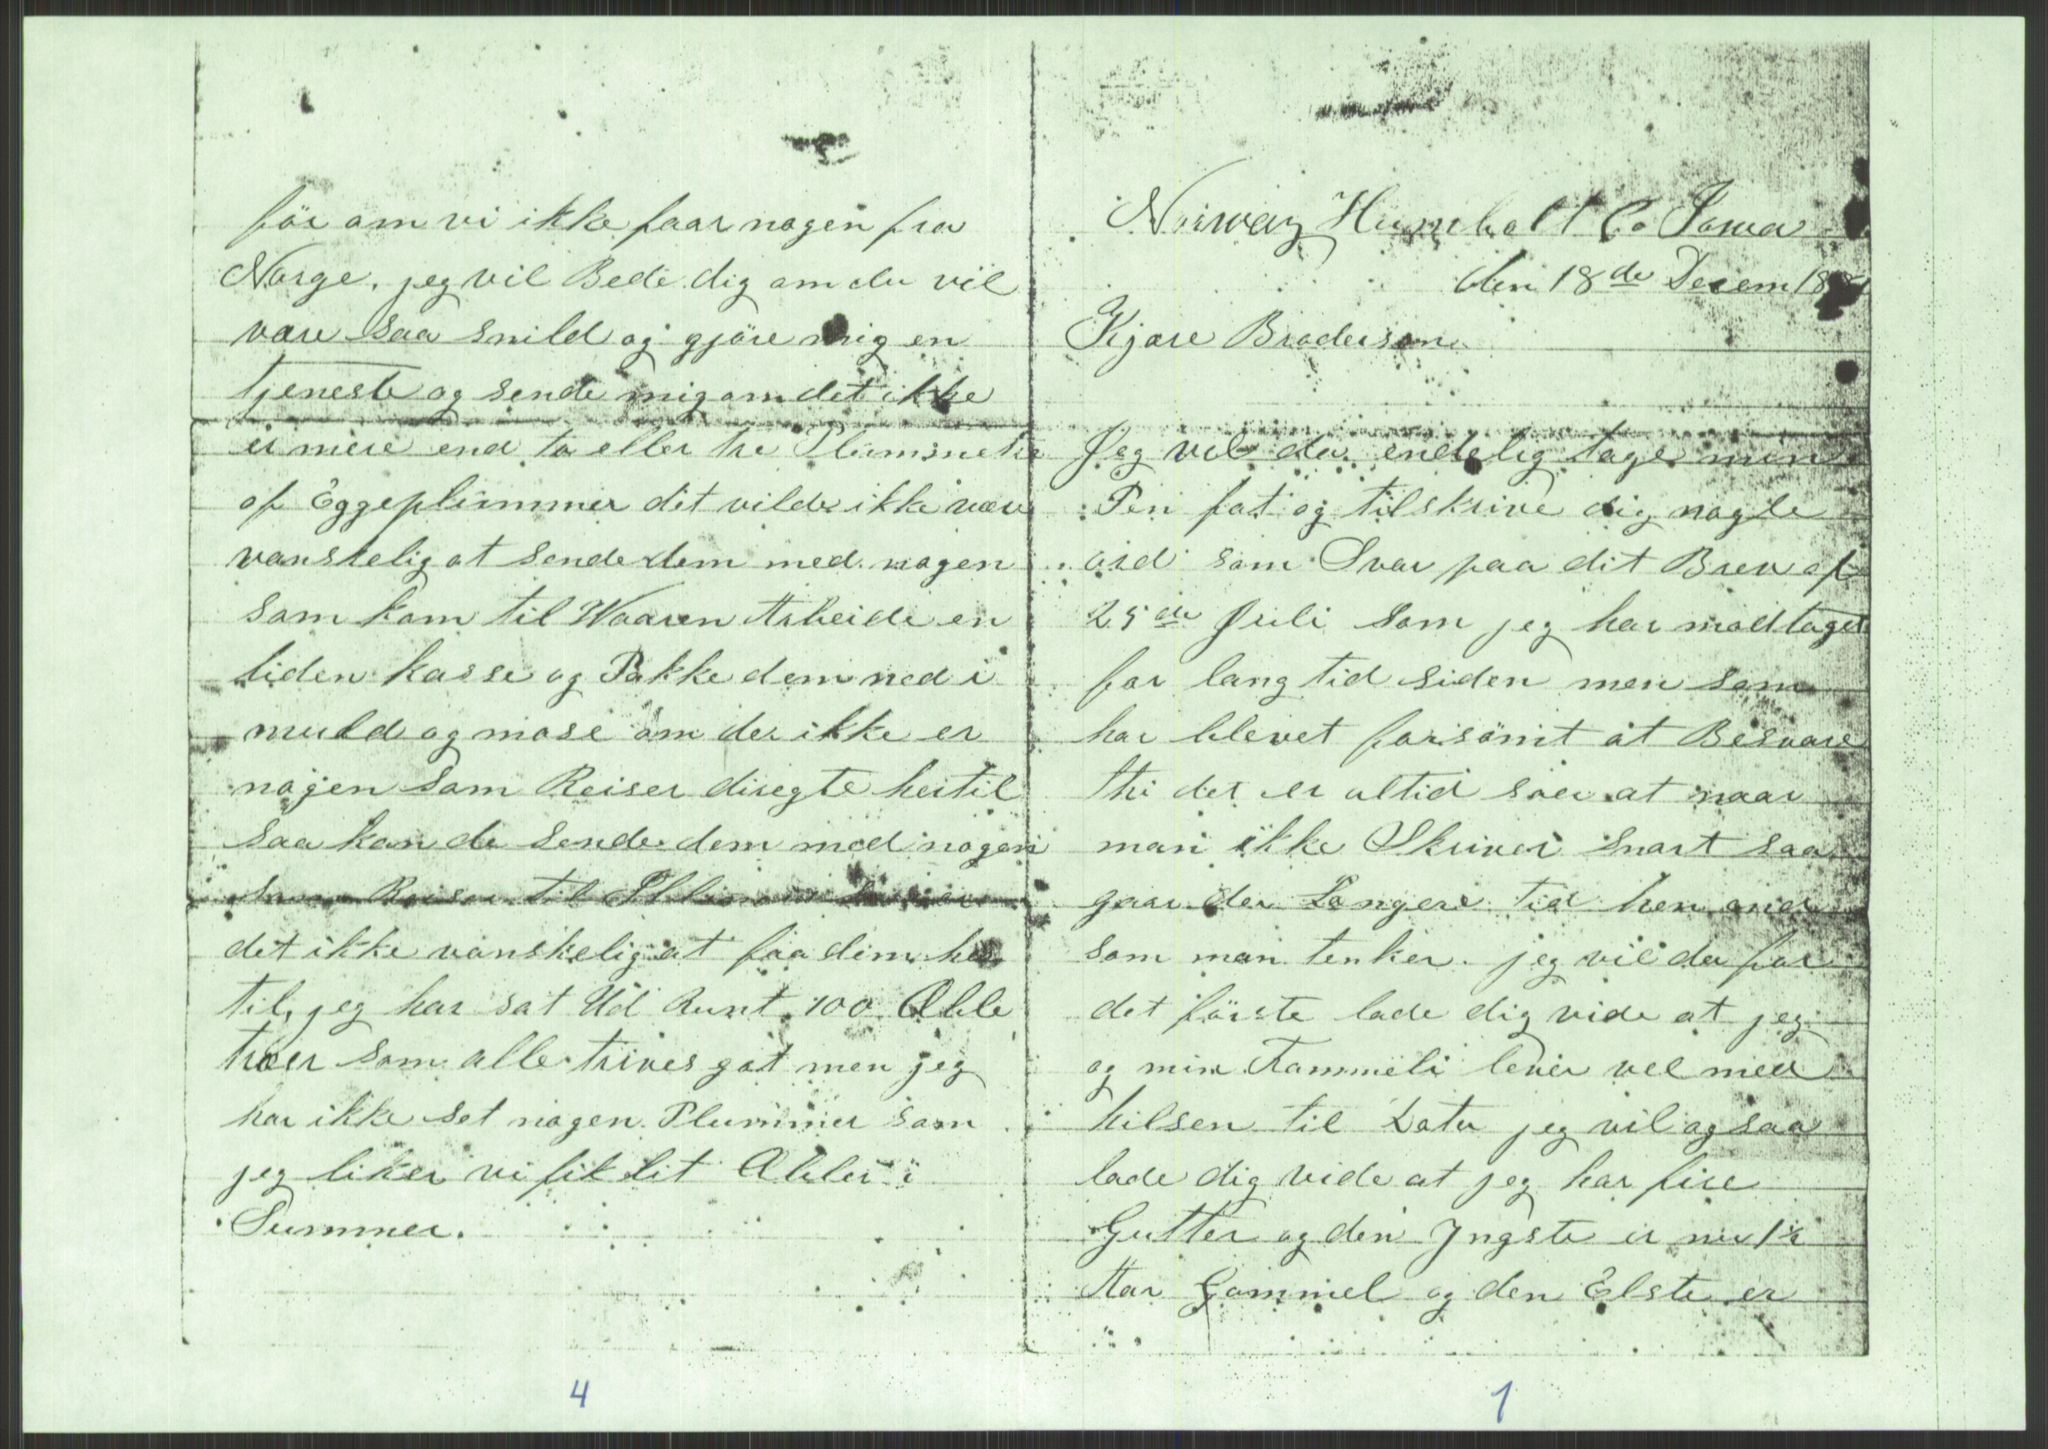 för om vi ikke faar nogen fra
Norge. jeg vil Bede dig om du vil
være saa snild og gjöre mig en
tjeneste og sende mig om det ikke
er mere end to eller tre
af Eggeplummer det vilde ikke være
vanskelig at sende dem med nogen
som kom til Vaaren Arbeide en
liden kasse og Pakke dem ned i
muld og mose om der ikke er
nogen som Reiser diregte hertil
saa kan du sende dem med nogen
som Reiser til
det ikke vanskelig at faa dem her
til, jeg har sat Ud Runt 100 Æble
træer som alle trives got men jeg
har ikke set nogen Plummer som
jeg liker vi fik lit Æbler i
Summer.
4
Norway Humbolt Co Iowa
den 18de Decem
Kjære Brodersøn
Jeg vil da endelig tage min
Pen fat og tilskrive dig nogle
ord som Svar paa dit Brev af
25de Juli som jeg har modtaget
for lang tid siden men som
har blevet forsömt at Besvare
thi det er altid saa at naar
man ikke Skriver snart saa
gaar der Længere tid hen end
som man tenker. jeg vil da for
det förste lade dig vide at jeg
og min Fammeli lever vel med
hilsen til Dato jeg vil og saa
lade dig vide at jeg har fire
Gutter og den Yngste er nu 1½
Aar Gammel og den Elste er
1